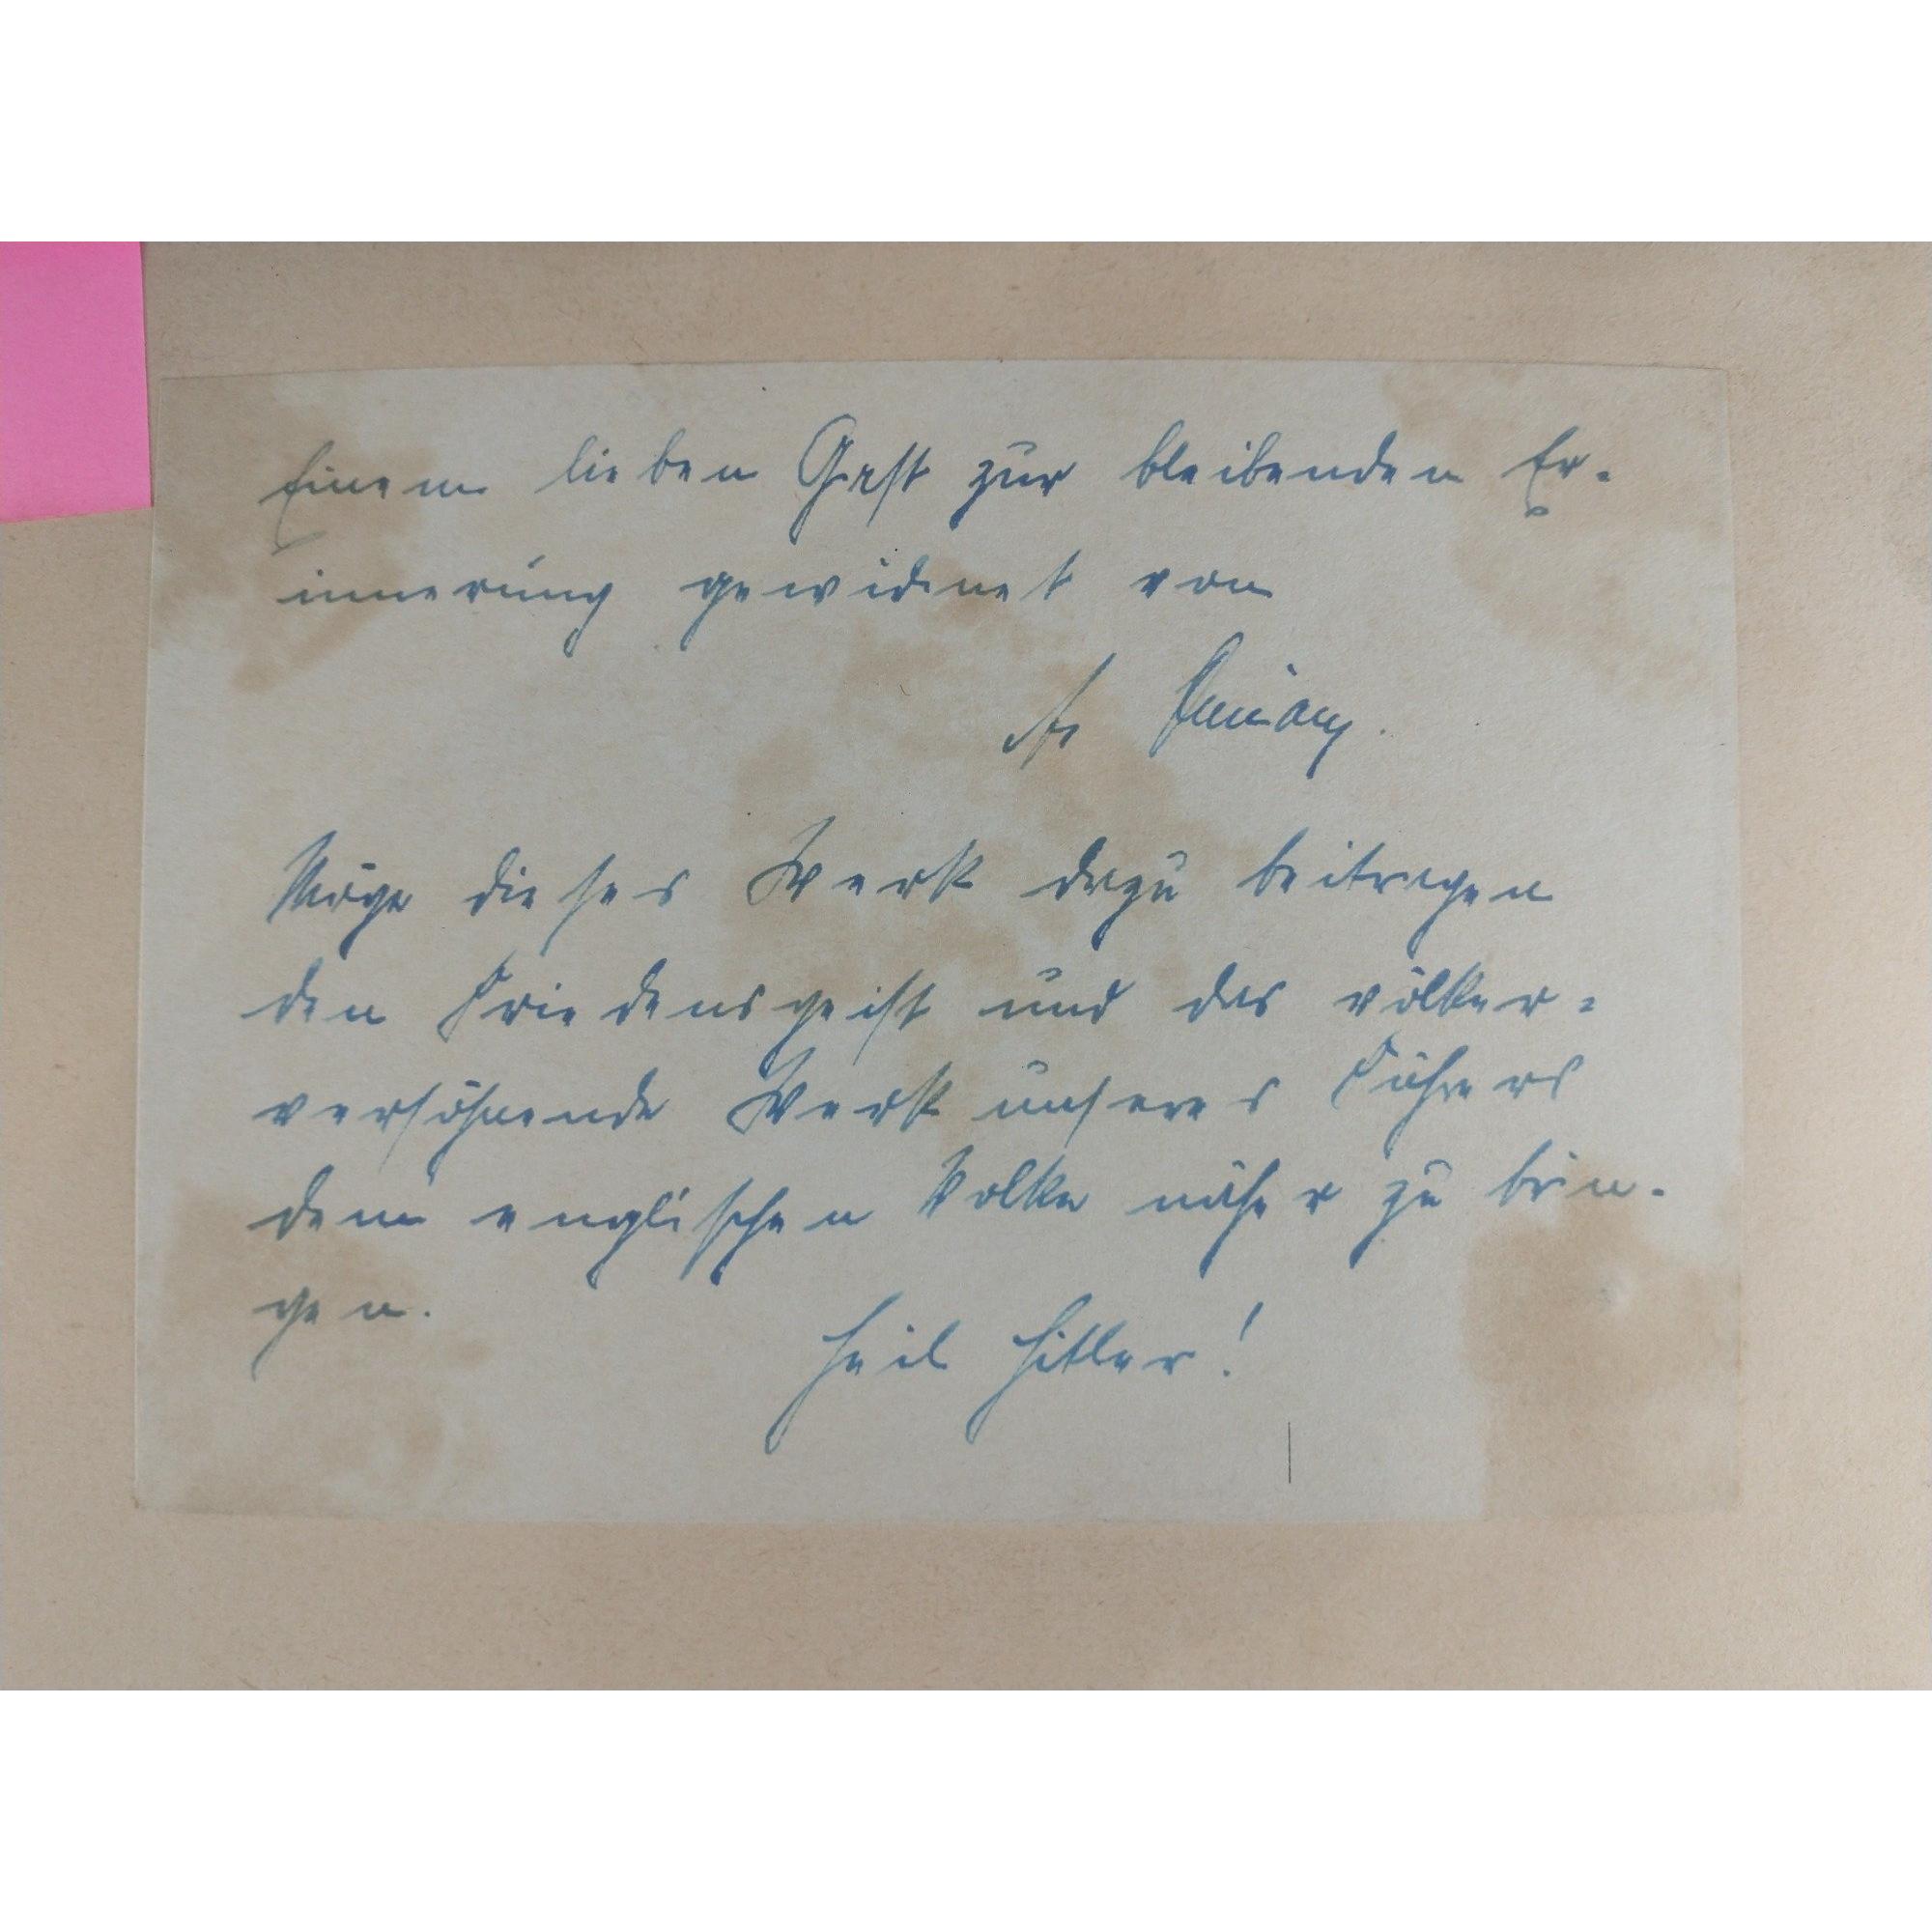 Einem lieben Gast zur bleibenden Er-
innerung gewidmet von
Möge dieses Werk dazu beitragen
den Friedensgeist und das völker=
versöhnende Werk unseres Führers
dem englischen Volke näher zu brin-
gen.
Heil Hitler!